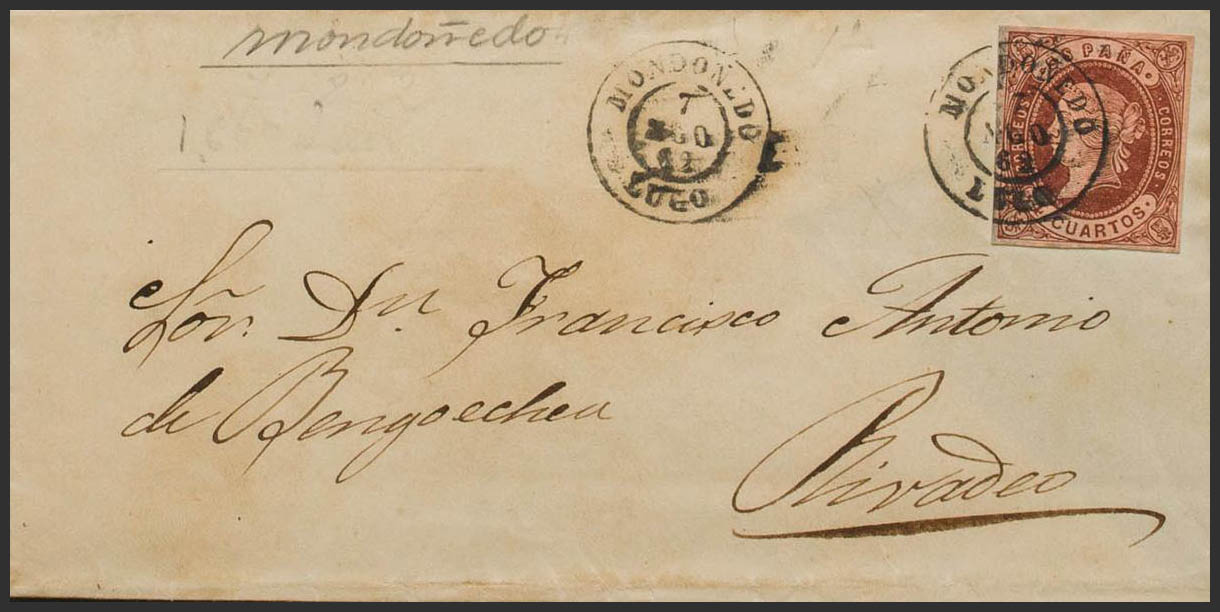 mondoñedo
MONDOÑEDO
7
AGO
LUGO
ESPAÑA
CORREOS.
CORREOS.
CUARTOS.
MONDOÑEDO
7
AGO
LUGO
Sor. Dn. Francisco Antonio
de Bengoechea
Rivadeo